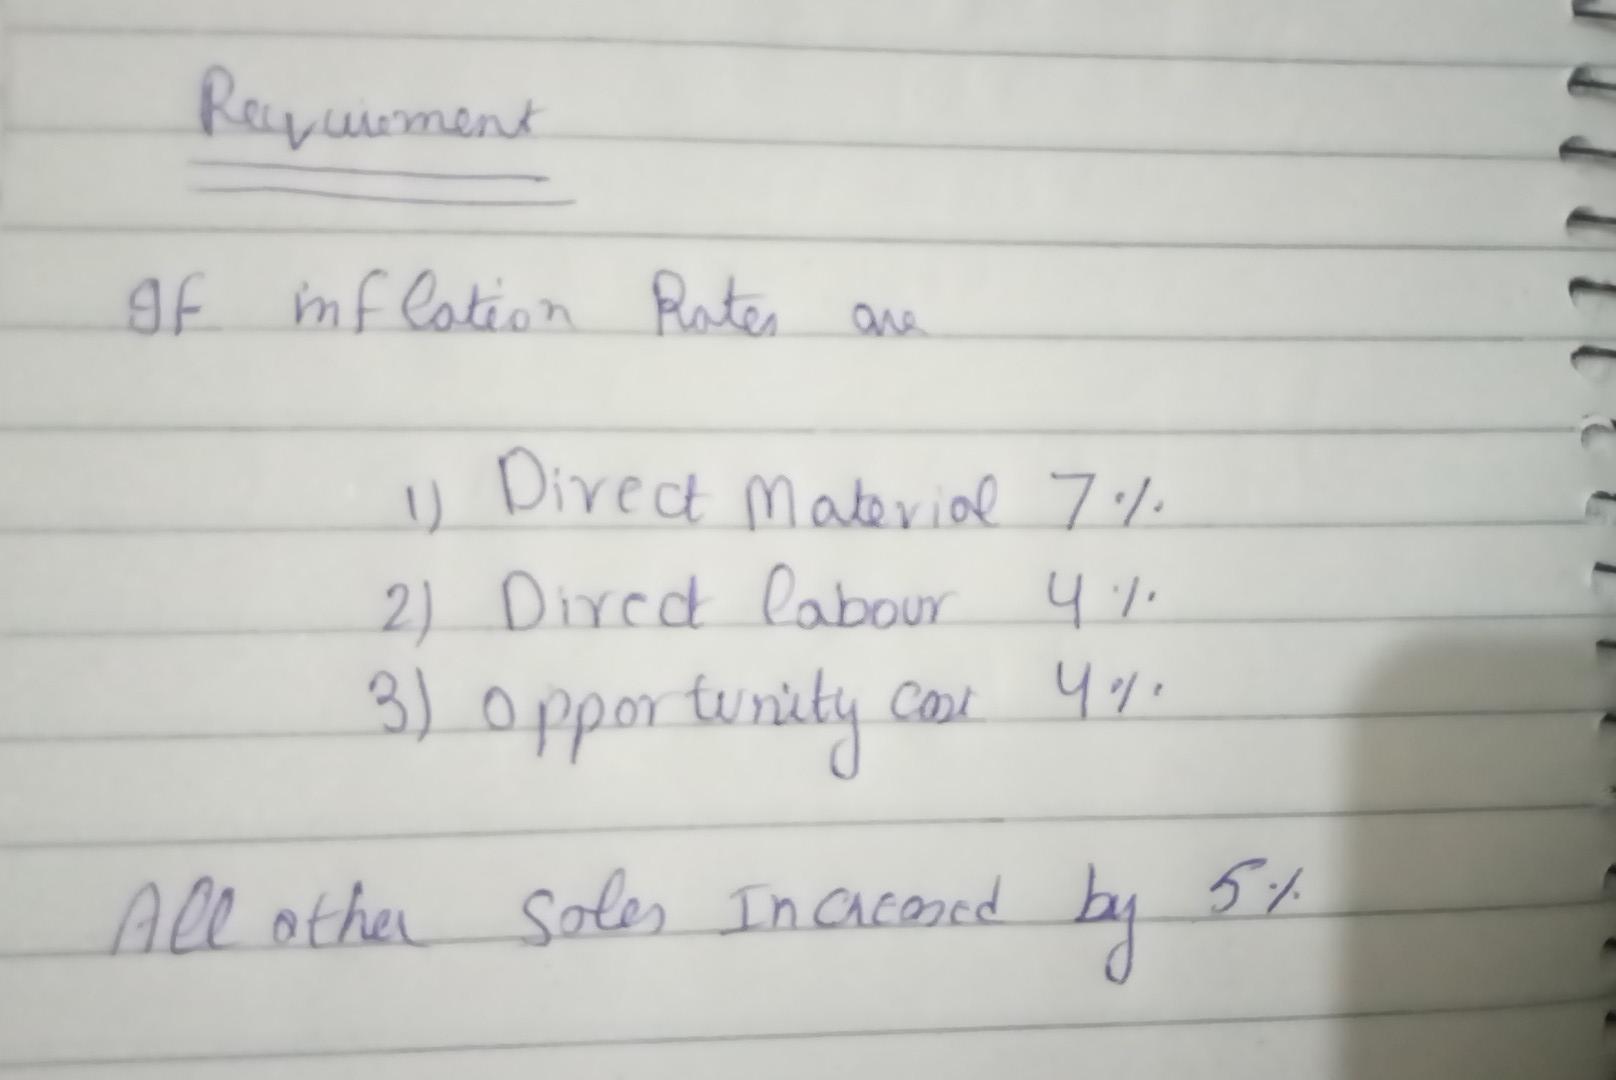 Requirement
If inflation Rates are
1) Direct Material 7%
2) Direct labour 4%
3) Opportunity cost 4%
All other Sales Increased by 5%